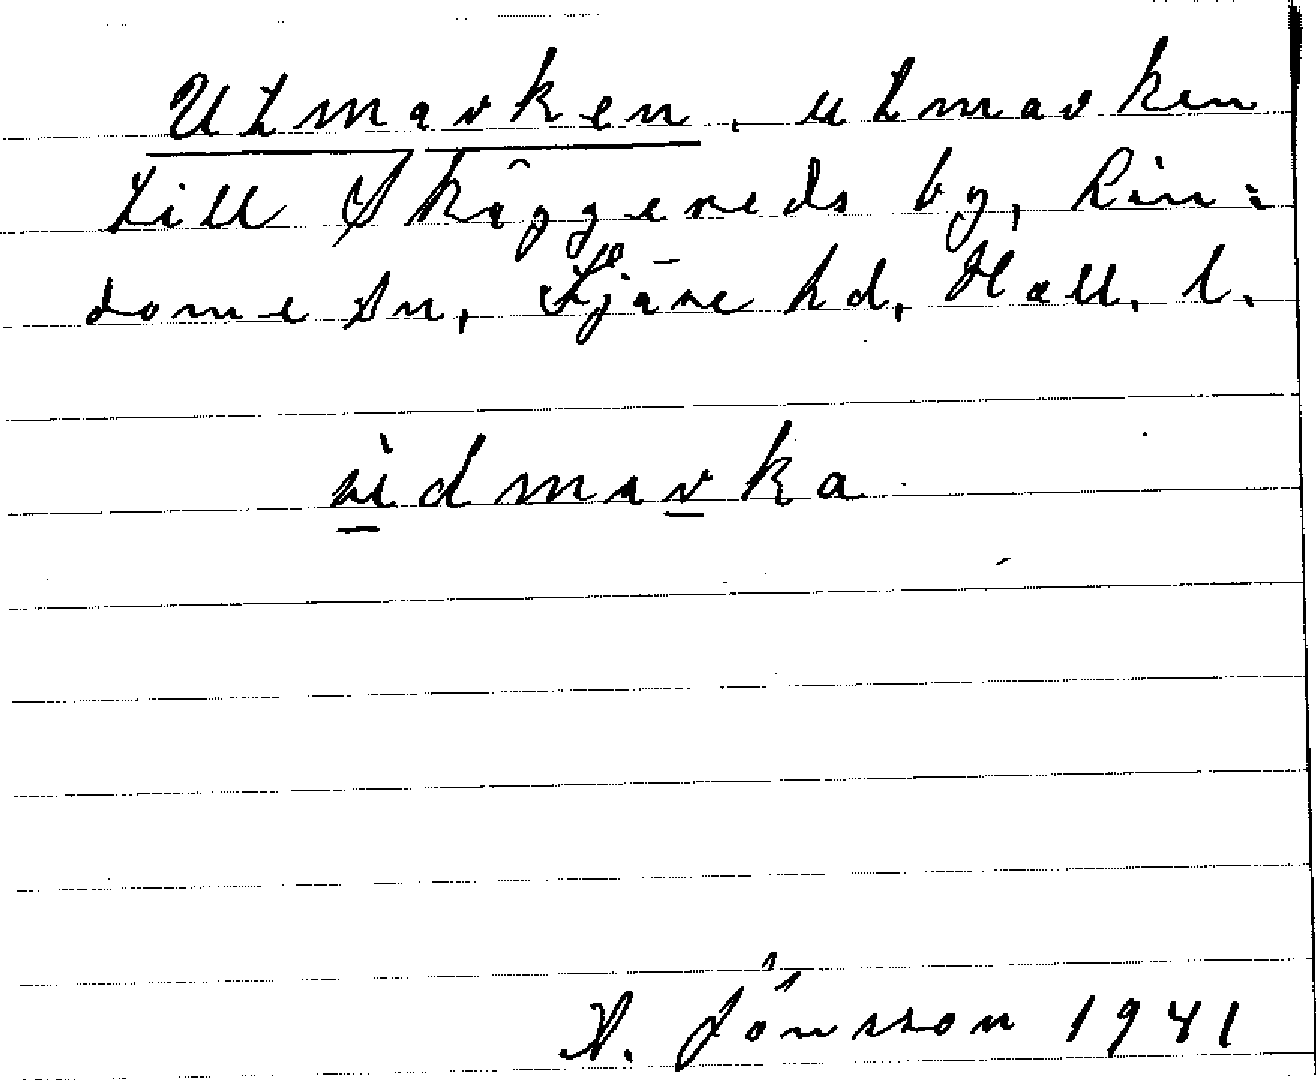 Utmarken, utmarken
till Skäggereds by, Lin-
dome sn, Fjäre hd, Hall. l.
ùdmarka
A. Jönsson 1941